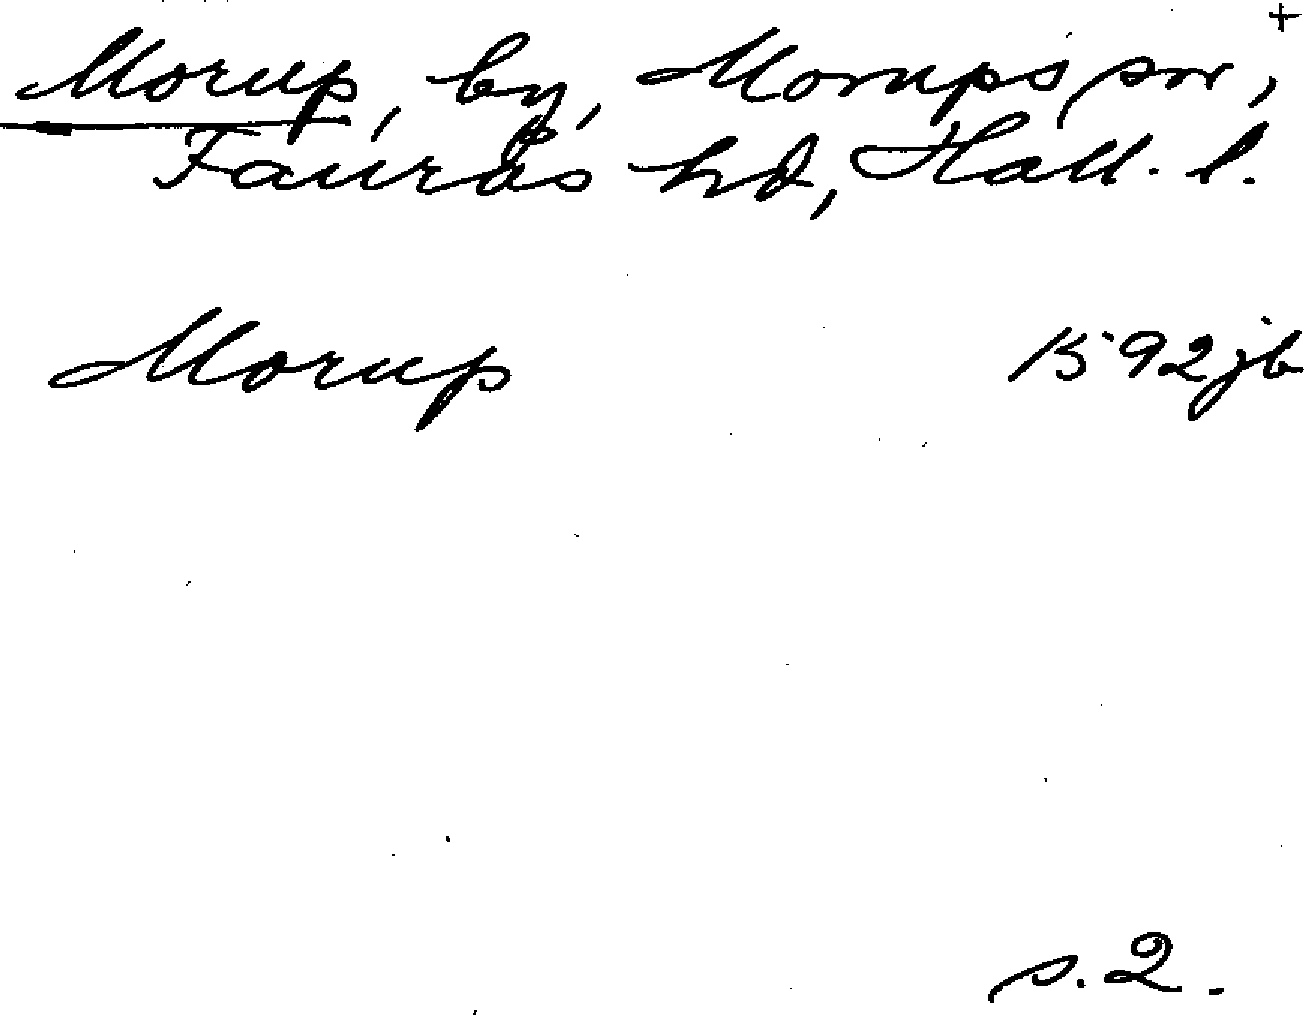 +
Morup, by, Morups sn,
Faurås hd, Hall. l.
Morup 1592 jb
s. 2.